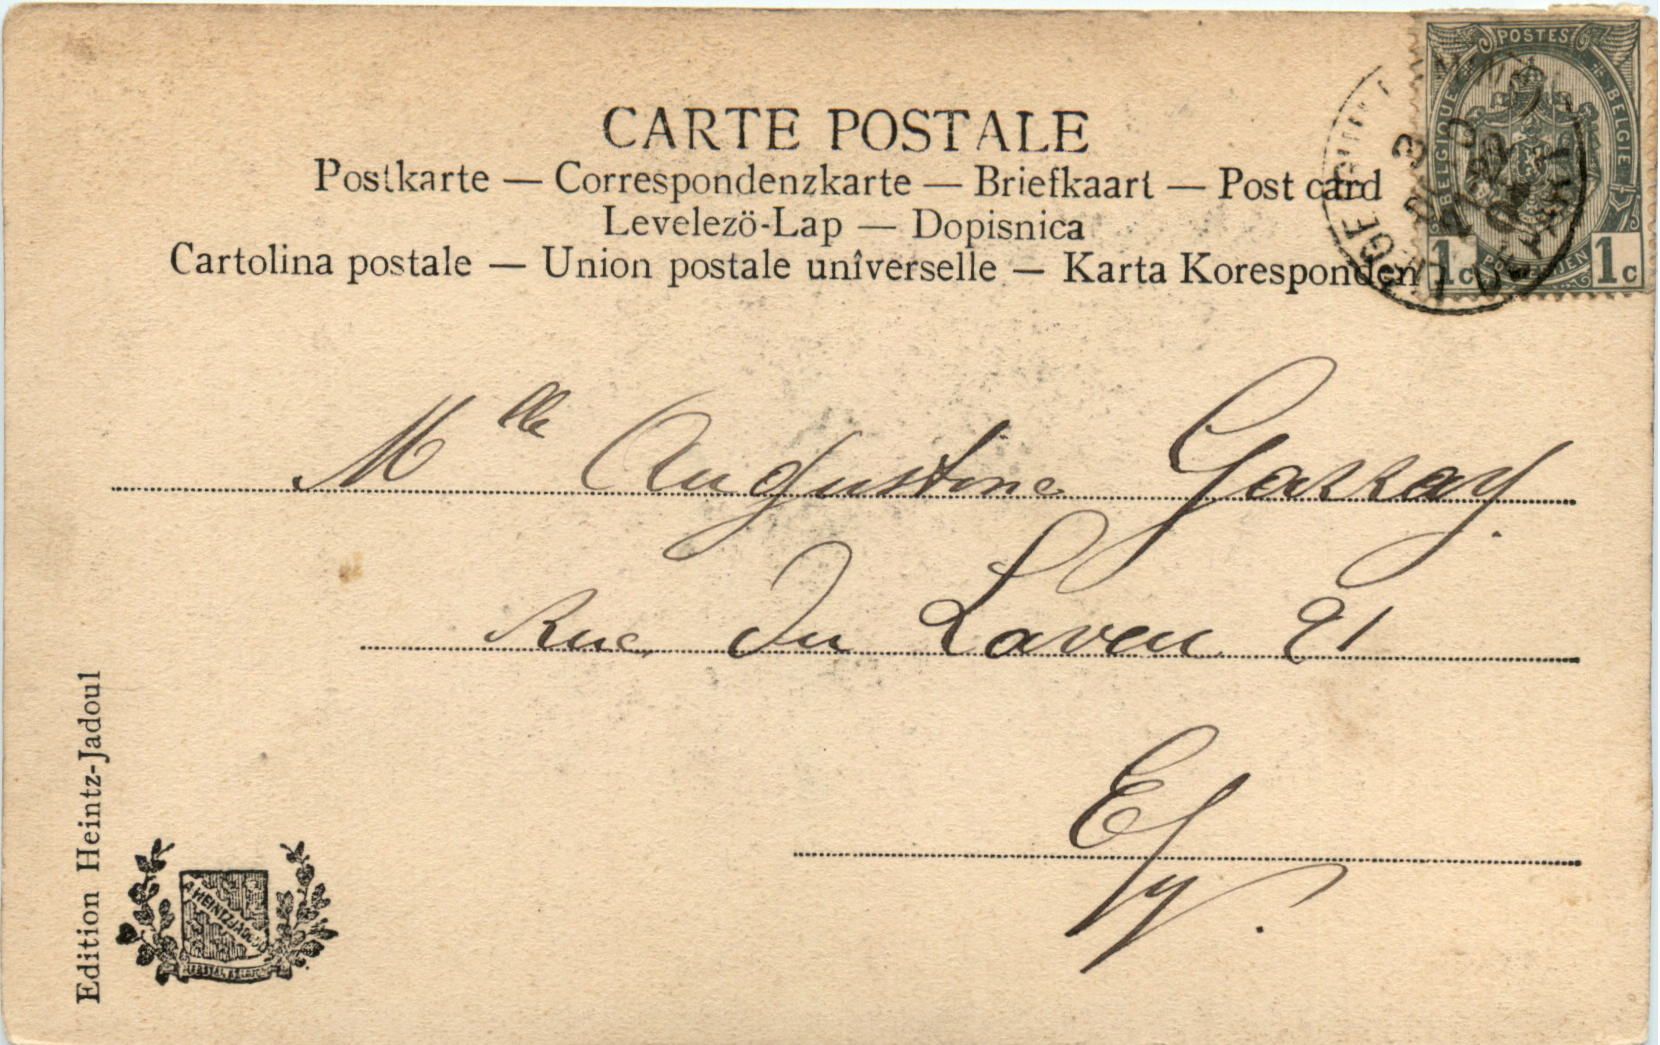 CARTE POSTALE
Postkarte — Correspondenzkarte — Briefkaart — Post card
Levelezö-Lap — Dopisnica
Cartolina postale — Union postale unîverselle — Karta Koresponden
POSTES
BELGIQUE
BELGIE
1c 1c
Mlle Augustine
Rue du Laveu 21
Edition Heintz-Jadoul
A HEINTZ-JADOUL